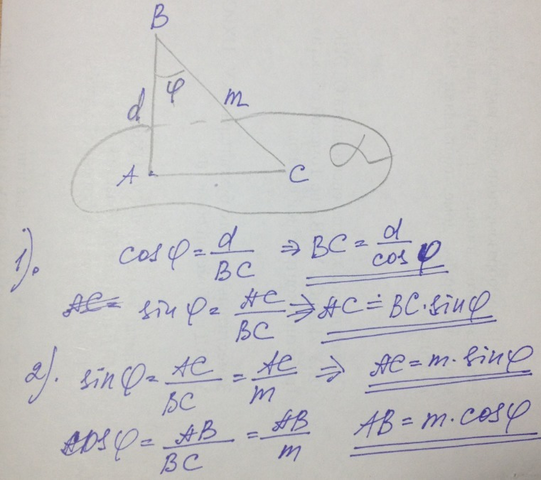 B
d φ m
A C α
1). cos φ = d/BC ⇒ BC = d/cos φ
sin φ = AC/BC ⇒ AC = BC · sin φ
2). sin φ = AC/BC = AC/m ⇒ AC = m · sin φ
cos φ = AB/BC = AB/m AB = m · cos φ